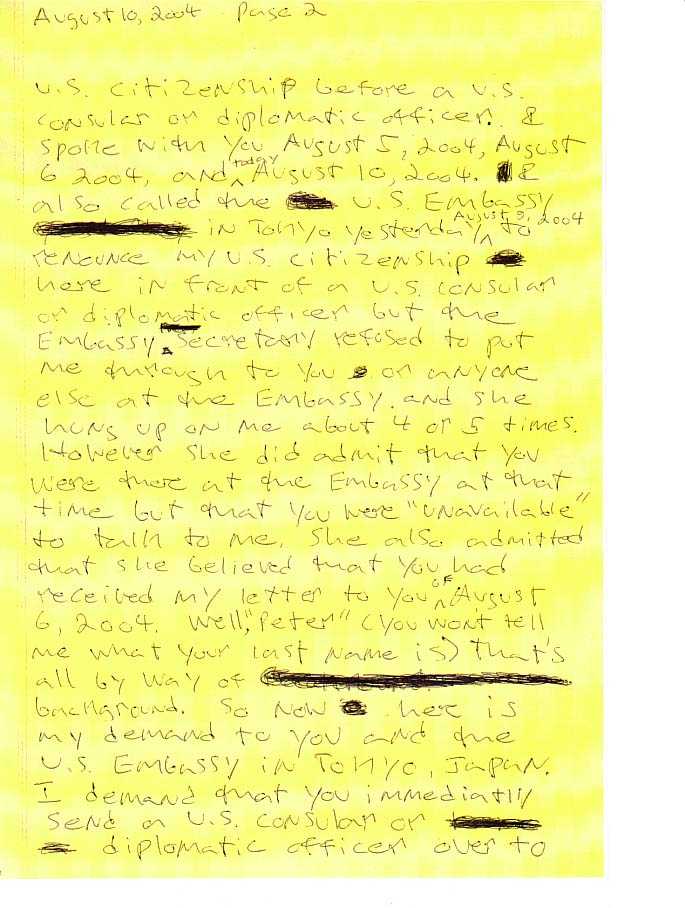 August 10, 2004 Page 2
U.S. citizenship before a U.S.
consular or diplomatic officer. I
spoke with you August 5, 2004, August
6 2004, and today August 10, 2004. I
also called the U.S. Embassy
in Tokyo yesterday August 9, 2004 to
renounce my U.S. citizenship
here in front of a U.S. consular
or diplomatic officer but the
Embassy secretary refused to put
me through to you or anyone
else at the Embassy and she
hung up on me about 4 or 5 times.
However she did admit that you
were there at the Embassy at that
time but that you were "unavailable"
to talk to me. She also admitted
that she believed that you had
received my letter to you of August
6, 2004. Well, "Peter" (you won't tell
me what your last name is) that's
all by way of
background. So now here is
my demand to you and the
U.S. Embassy in Tokyo, Japan.
I demand that you immediatly
send a U.S. consular or
diplomatic officer over to